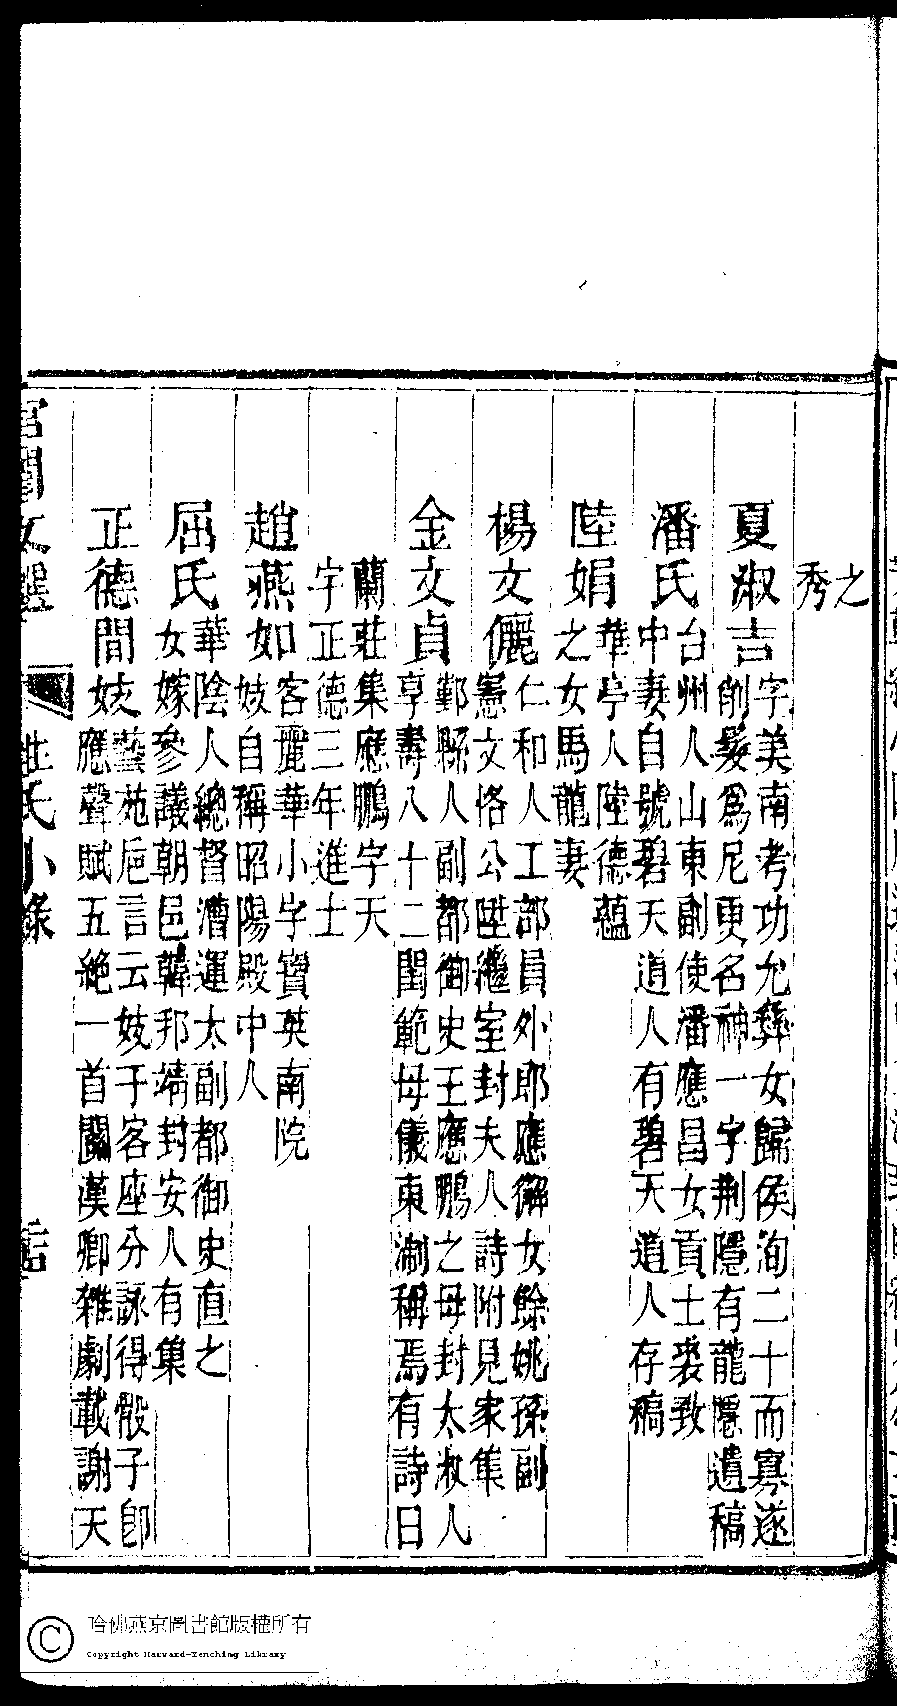 之
秀
夏淑吉字美南考功允彝女歸侯洵二十而寡遂
削髮為尼更名神一字荆隱有龍隱遺稿
潘氏台州人山東副使潘應昌女貢士裘致
中妻自號碧天道人有碧天道人存稿
陸娟華亭人陸德蘊
之女馬龍妻
楊文儷仁和人工部員外郎應獬女餘姚孫副
憲文恪公陞繼室封夫人詩附見家集
金文貞鄞縣人副都御史王應鵬之母封太淑人
享壽八十二閨範母儀東淛稱焉有詩曰
蘭莊集應鵬字天
宇正德三年進士
趙燕如客麗華小字寶英南院
妓自稱昭陽殿中人
屈氏華陰人總督漕運太副都御史直之
女嫁參議朝邑韓邦靖封安人有集
正德間妓藝苑巵言云妓于客座分詠得骰子即
應聲賦五絶一首關漢卿雜劇載謝天
宮閨文選 姓氏小錄
哈佛燕京圖書館版權所有
Copyright Harvard-Yenching Library